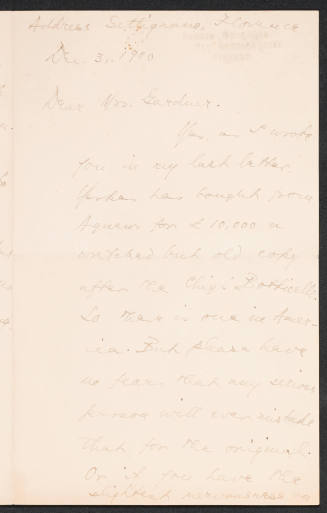 Address Settignano, Florence
Dec. 3, 1900
Dear Mrs. Gardner.
Yes, as I wrote
you in my last letter
Yerkes has bought from
Agnews for £10,000 a
wretched but old copy
after the Chigi Botticelli.
So there is one in Amer-
ica. But please have
no fear that any serious
person will ever mistake
that for the original.
Or if you have the
slightest nervousness